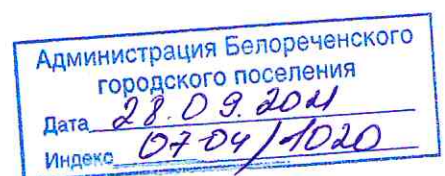 Администрация Белореченского
городского поселения
Дата 28.09.2021
Индекс 07-04/1020